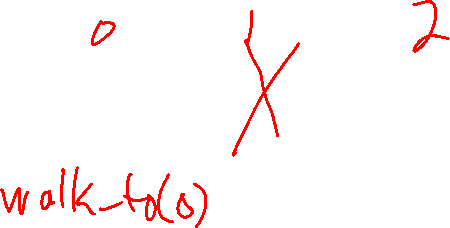 0 X 2
walk_to(0)